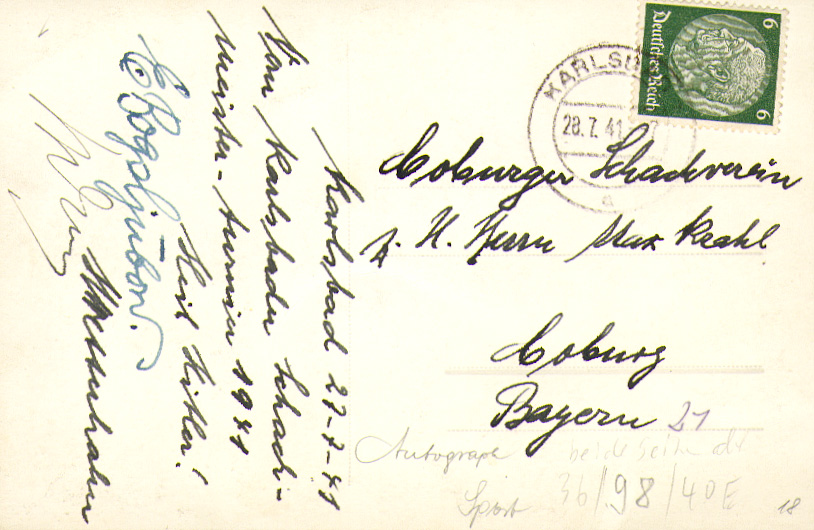 Karlsbad 27-7-41
Vom Karlsbader Schach-
meister-turnier 1941
Heil Hitler!
E Bogoljubow.
6
Deutsches Reich
6
KARLSB
28.7.41
a
Coburger Schachverein
z. H. Herrn Max Krahl
Coburg
Bayern 21
Autograph beide Seiten
Sport 36/98/40E
18